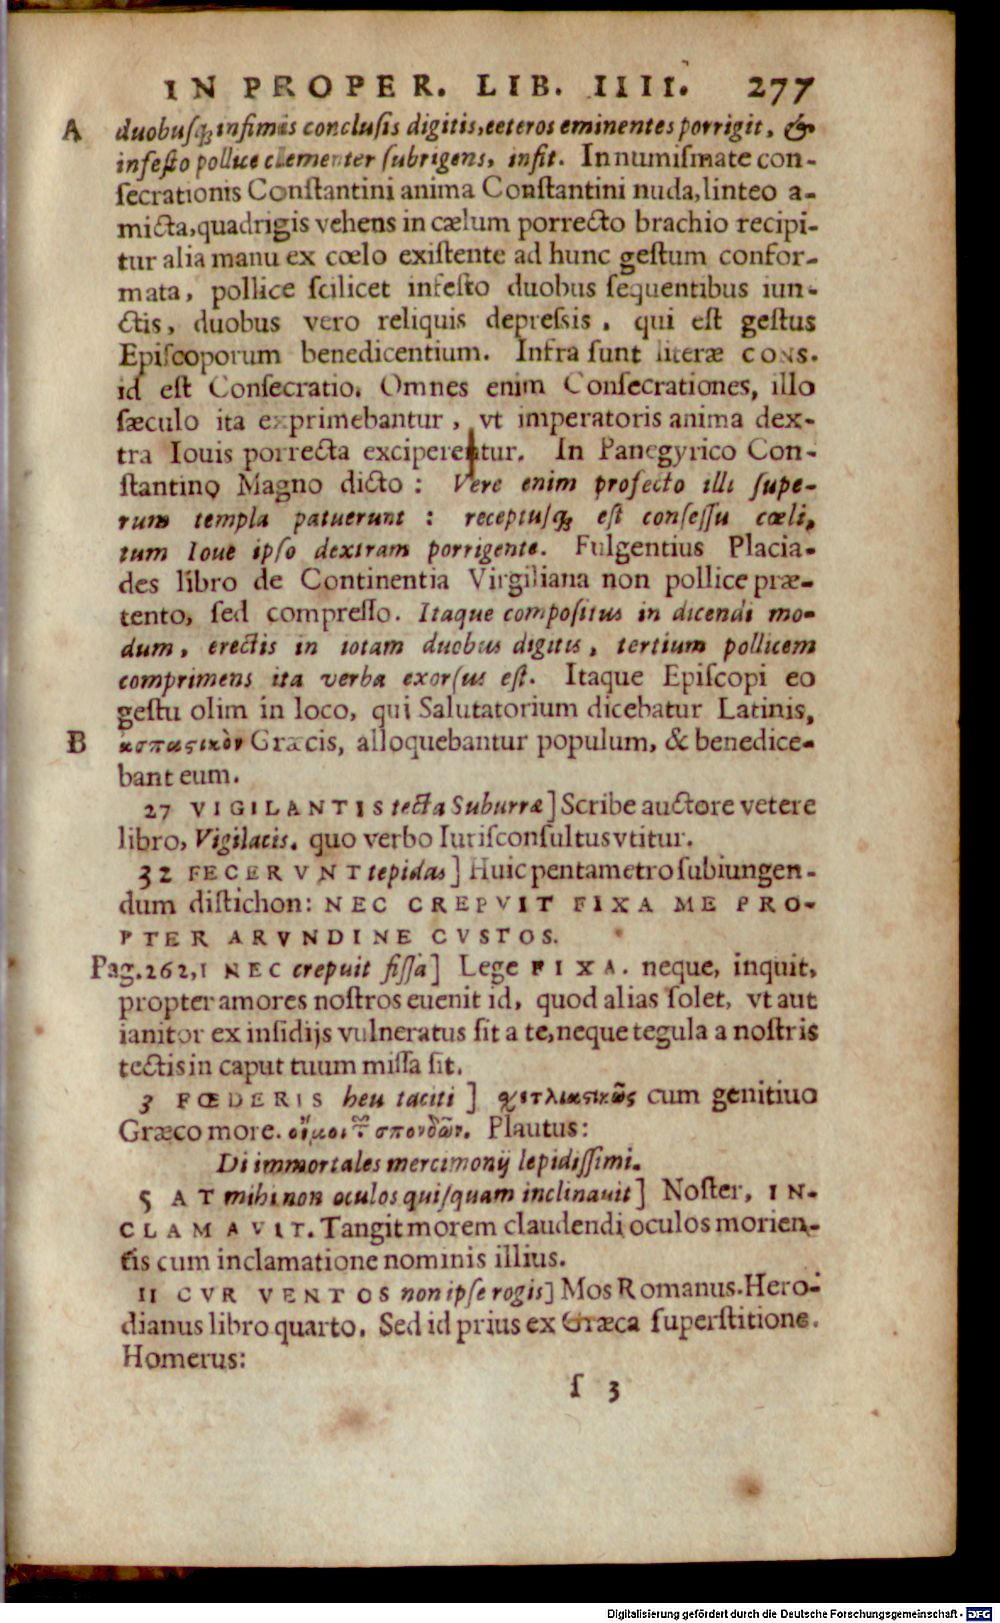 IN PROPER. LIB. IIII. 277
A duobusq́; infimis conclusis digitis, ceteros eminentes porrigit, &
infesto pollice clementer subrigens, infit. In numismate con-
secrationis Constantini anima Constantini nuda, linteo a-
micta, quadrigis vehens in cælum porrecto brachio recipi-
tur alia manu ex cœlo existente ad hunc gestum confor-
mata, pollice scilicet infesto duobus sequentibus iun-
ctis, duobus vero reliquis depressis, qui est gestus
Episcoporum benedicentium. Infra sunt literæ CONS.
id est Consecratio. Omnes enim Consecrationes, illo
sæculo ita exprimebantur, vt imperatoris anima dex-
tra Iouis porrecta exciperentur. In Panegyrico Con-
stantino Magno dicto: Vere enim profecto illi supe-
rum templa patuerunt: receptusq́; est consessu cœli-
tum Ioue ipso dextram porrigente. Fulgentius Placia-
des libro de Continentia Virgiliana non pollice præ-
tento, sed compresso. Itaque compositus in dicendi mo-
dum, erectis in iotam duobus digitis, tertium pollicem
comprimens ita verba exorsus est. Itaque Episcopi eo
gestu olim in loco, qui Salutatorium dicebatur Latinis,
B ἀσπαστικὸν Græcis, alloquebantur populum, & benedice-
bant eum.
27 VIGILANTIS tecta Suburræ] Scribe auctore vetere
libro, Vigilacis. quo verbo Iurisconsultus vtitur.
32 FECERVNT tepidas] Huic pentametro subiungen-
dum distichon: NEC CREPVIT FIXA ME PRO-
PTER ARVNDINE CVSTOS.
Pag. 262, 1 NEC crepuit fissa] Lege FIXA. neque, inquit,
propter amores nostros euenit id, quod alias solet, vt aut
ianitor ex insidijs vulneratus sit a te, neque tegula a nostris
tectis in caput tuum missa sit.
3 FŒDERIS heu taciti] χετλιαστικῶς cum genitiuo
Græco more. οἴμοι τῶν σπονδῶν. Plautus:
Di immortales mercimonij lepidissimi.
5 AT mihi non oculos quisquam inclinauit] Noster, IN-
CLAMAVIT. Tangit morem claudendi oculos morien-
tis cum inclamatione nominis illius.
11 CVR VENTOS non ipse rogis] Mos Romanus. Hero-
dianus libro quarto. Sed id prius ex Græca superstitione.
Homerus:
s 3
Digitalisierung gefördert durch die Deutsche Forschungsgemeinschaft - DFG